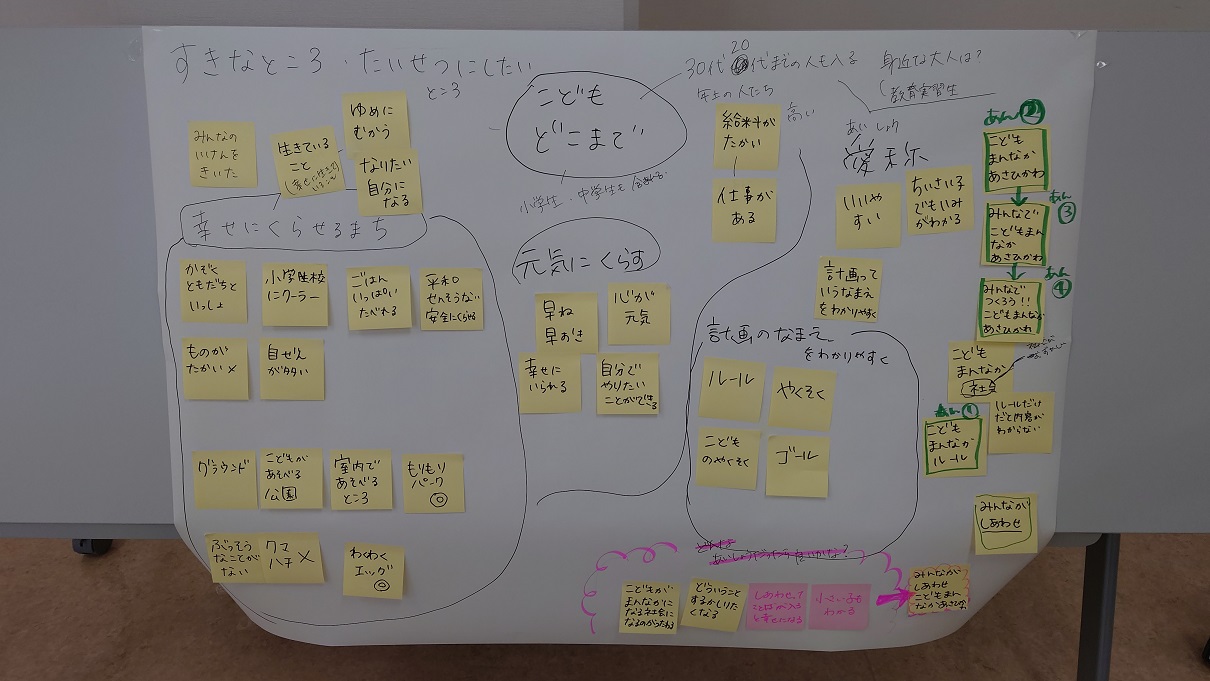 すきなところ・たいせつにしたい
ところ
みんなの
いけんを
きいた
生きている
こと
ゆめに
むかう
なりたい
自分に
なる
幸せにくらせるまち
かぞく
ともだちと
いっしょ
小学生校
にクーラー
ごはん
いっぱい
たべれる
平和
せんそうない
安全にくらせる
ものが
たかい×
自ぜん
が多い
グラウンド
こどもが
あそべる
公園
室内で
あそべる
ところ
もりもり
パーク
◎
ぶっそう
なことが
ない
クマ
ハチ ×
わくわく
エッグ
◎
こども
どこまで
小学生・中学生も
元気にくらす
早ね
早おき
心が
元気
幸せに
いられる
自分で
やりたい
ことができる
20
30代 代までの人も入る
年上の人たち
給料が
たかい
高い
仕事が
ある
身近な大人は?
(教育実習生
あいしょう
愛称
いいや
すい
ちいさい子
でもいみ
がわかる
計画って
いうなまえ
をわかりやすく
計画のなまえ
をわかりやすく
ルール
やくそく
こども
のやくそく
ゴール
あん②
こども
まんなか
あさひかわ
あん
③
みんなで
こどもまん
なか
あさひかわ
あん
④
みんなで
つくろう!!
こどもまんなか
あさひかわ
こども
まんなか
社会
ルールだけ
だと内容が
わからない
あん①
こども
まんなか
ルール
みんなが
しあわせ
こどもが
まんなかに
なる社会に
なるのがつたわる
どういうこと
するかしりた
くなる
しあわせって
ことばが入ると
幸せになる
小さい子も
わかる
みんなが
しあわせ
こどもまん
なかあさひかわ